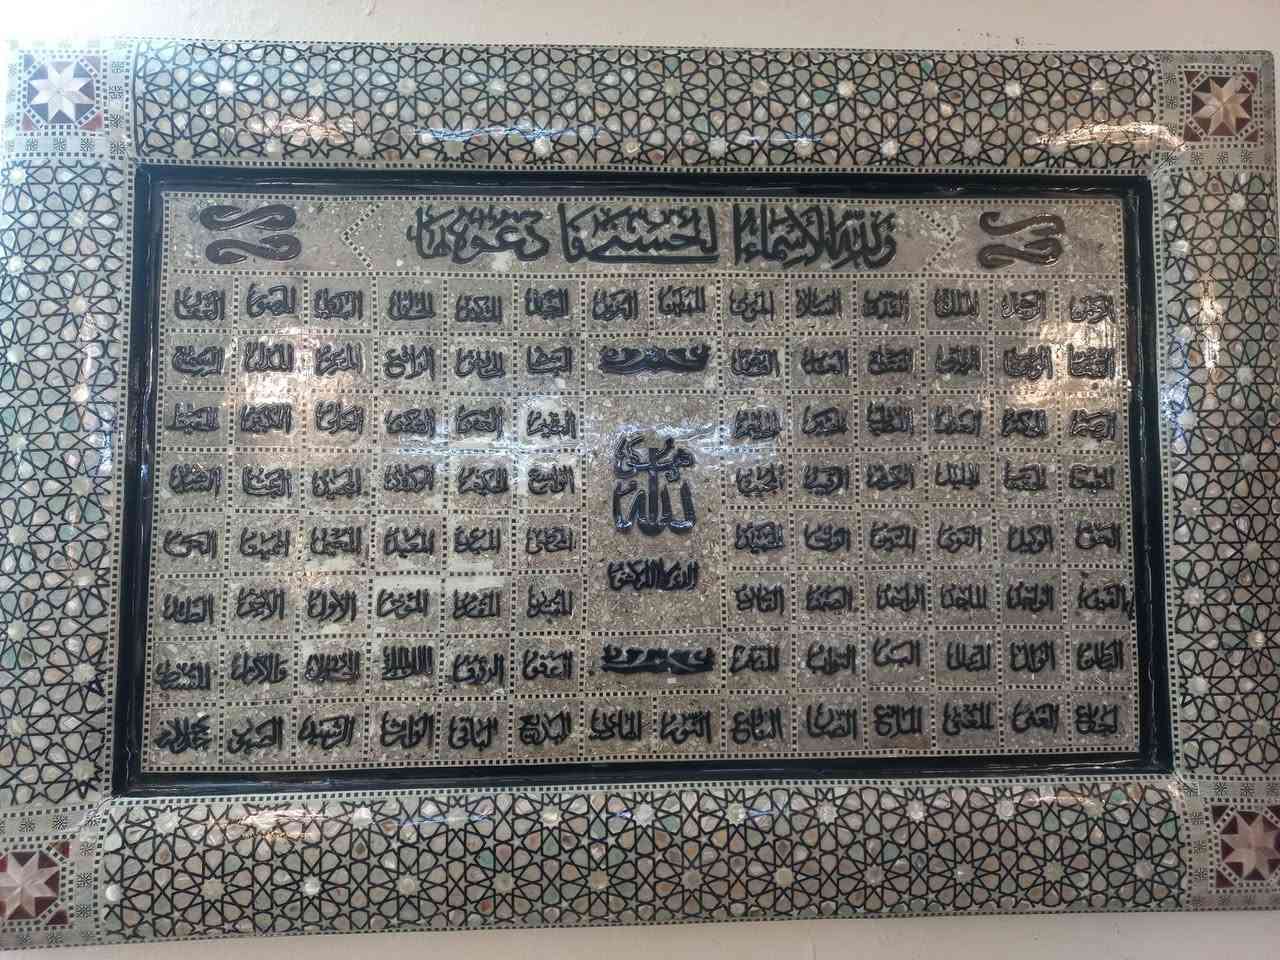 ولله الأسماء الحسنى فادعوه بها
الرحمن الرحيم الملك القدوس السلام المؤمن المهيمن العزيز الجبار المتكبر الخالق البارئ المصور الغفار
القهار الوهاب الرزاق الفتاح العليم القابض الباسط الخافض الرافع المعز المذل السميع
البصير الحكم العدل اللطيف الخبير الحليم العظيم الغفور الشكور العلي الكبير الحفيظ
المقيت الحسيب الجليل الكريم الرقيب المجيب الواسع الحكيم الودود المجيد الباعث الشهيد
هو الله
الحق الوكيل القوي المتين الولي الحميد المحصي المبدئ المعيد المحيي المميت الحي
الذي لا إله إلا هو
القيوم الواجد الماجد الواحد الصمد القادر المقتدر المقدم المؤخر الأول الآخر الظاهر
الباطن الوالي المتعالي البر التواب المنتقم العفو الرؤوف مالك الملك ذو الجلال والإكرام المقسط
الجامع الغني المغني المانع الضار النافع النور الهادي البديع الباقي الوارث الرشيد الصبور جل جلاله